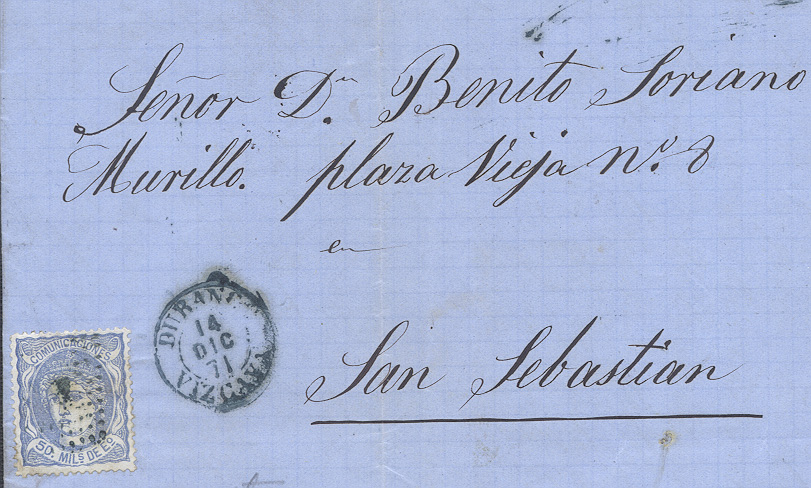 Señor Dn. Benito Soriano
Murillo. plaza Vieja nº. 8
en
San Sebastian
DURANGO
14
DIC
71
VIZCAYA
COMUNICACIONES
50 MILS DE Eo